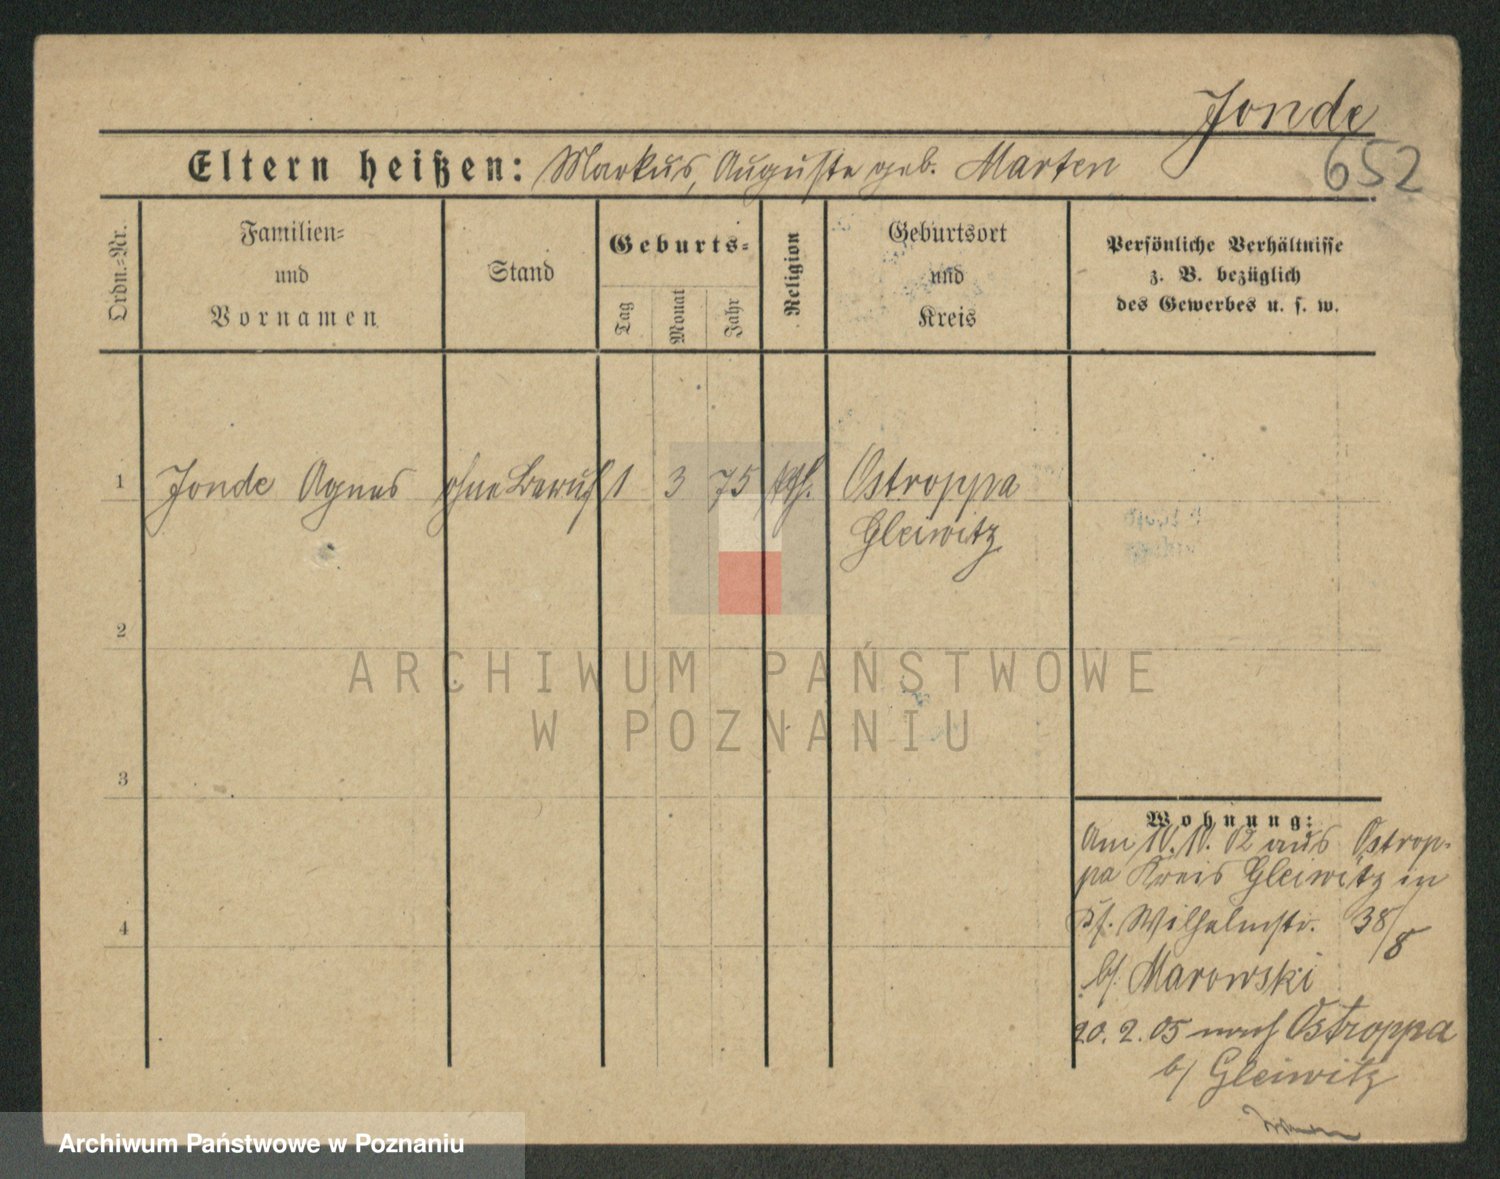 Jonde
652
Eltern heißen: Markus, Auguste geb. Marten
Ordn.-Nr.
Familien-
und
Vornamen
Stand
Geburts-
Tag
Monat
Jahr
Religion
Geburtsort
und
Kreis
Persönliche Verhältnisse
z. B. bezüglich
des Gewerbes u. s. w.
1 Jonde Agnes ohne Beruf 1 3 75 kth. Ostroppa
Gleiwitz
2
3
4
Wohnung:
Am 10.10.02 aus Ostrop-
pa Kreis Gleiwitz in
Wilhelmstr. 38/8
b/ Marowski
20.2.05 nach Ostroppa
b/ Gleiwitz
ARCHIWUM PAŃSTWOWE
W POZNANIU
Archiwum Państwowe w Poznaniu